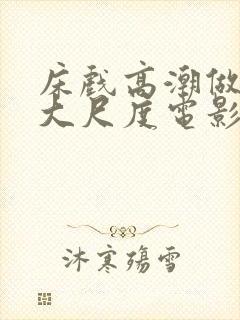 床戏高潮做
大尺度电影
沐寒殇雪